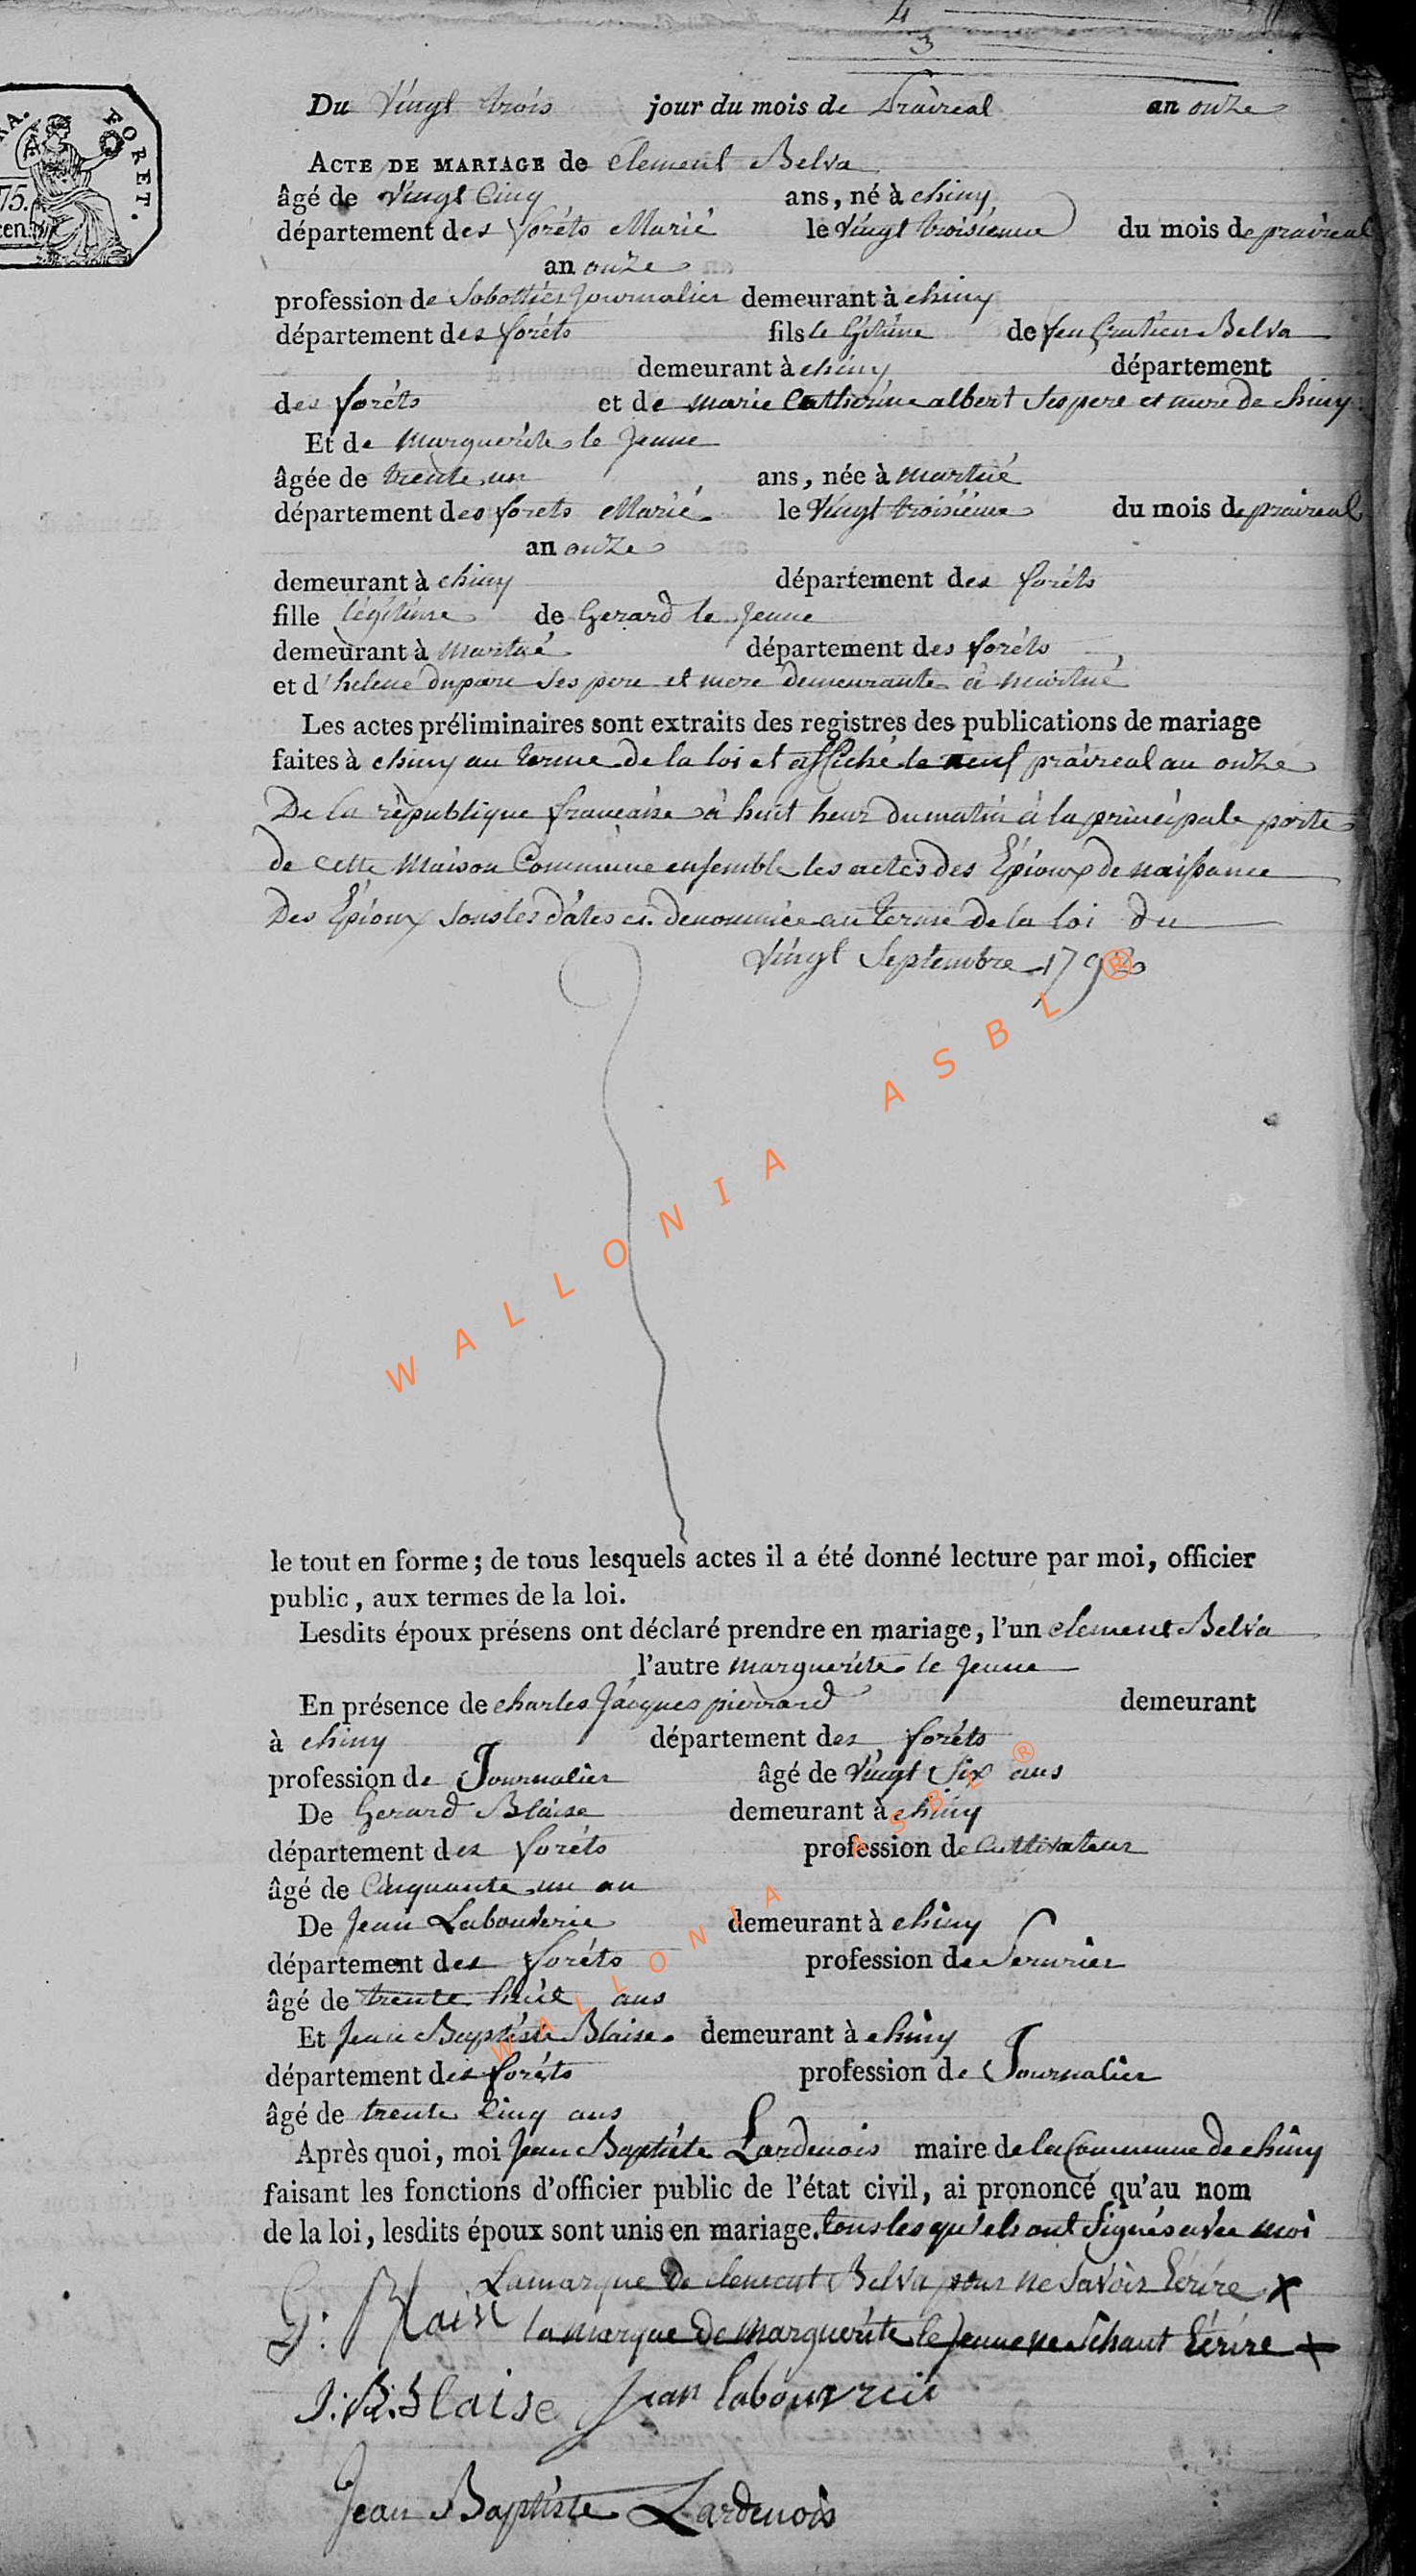 4
3
Du Vingt trois jour du mois de Prairéal an onze
RA. FORET.
75.
cen.
ACTE DE MARIAGE de Clement Belva
âgé de Vingt Cinq ans, né à chiny
département des foréts Marié le Vingt troisieme du mois de prairéal
an onze
profession de Sabottier Journalier demeurant à chiny
département des foréts fils le Gitime de feu Belva
demeurant à chiny département
des foréts et de marie Catherine albert Ses pere et mere de chiny
Et de Marguerite le Jeune
âgée de trente un ans, née à martué
département des forets Marié le Vingt troisiéme du mois de prairéal
an onze
demeurant à chiny département des foréts
fille légitime de Gerard le Jeune
demeurant à Martué département des foréts
et d'helene dupare Ses pere et mere demeurante à Martué
Les actes préliminaires sont extraits des registres des publications de mariage
faites à chiny au terme de la loi et affiché le neuf prairéal an onze
De la république francaise à huit heur du matin à la principale porte
de cette Maison Commune ensemble les actes des Epioux de naissance
Des Epioux Sous les dates ci denommée au terme de la loi du
Vingt Septembre 179
WALLONIA ASBL ®
le tout en forme ; de tous lesquels actes il a été donné lecture par moi, officier
public, aux termes de la loi.
Lesdits époux présens ont déclaré prendre en mariage, l'un clement Belva
l'autre marguerite le Jeune
En présence de charles Jacques pierrard demeurant
à chiny département des foréts
profession de Journalier âgé de Vingt Six ans
De Gerard Blaise demeurant à chiny
département des foréts profession de Cultivateur
âgé de Cinquante un an
De Jean Labouverie demeurant à chiny
département des foréts profession de Serurier
âgé de trente huit ans
Et Jean Baptiste Blaise demeurant à chiny
département des foréts profession de Journalier
âgé de trente Cinq ans
WALLONIA ASBL ®
Après quoi, moi Jean Baptiste Lardenois maire de la Commune de chiny
faisant les fonctions d'officier public de l'état civil, ai prononcé qu'au nom
de la loi, lesdits époux sont unis en mariage. tous les qu'els ont Signés avec moi
La marque De clement Belva pour ne Savoir Ecrire X
G: Blaise la marque De marguerite le Jeune ne Schant Ecrire +
J:B:Blaise Jean labouvreie
Jean Baptiste Lardenois